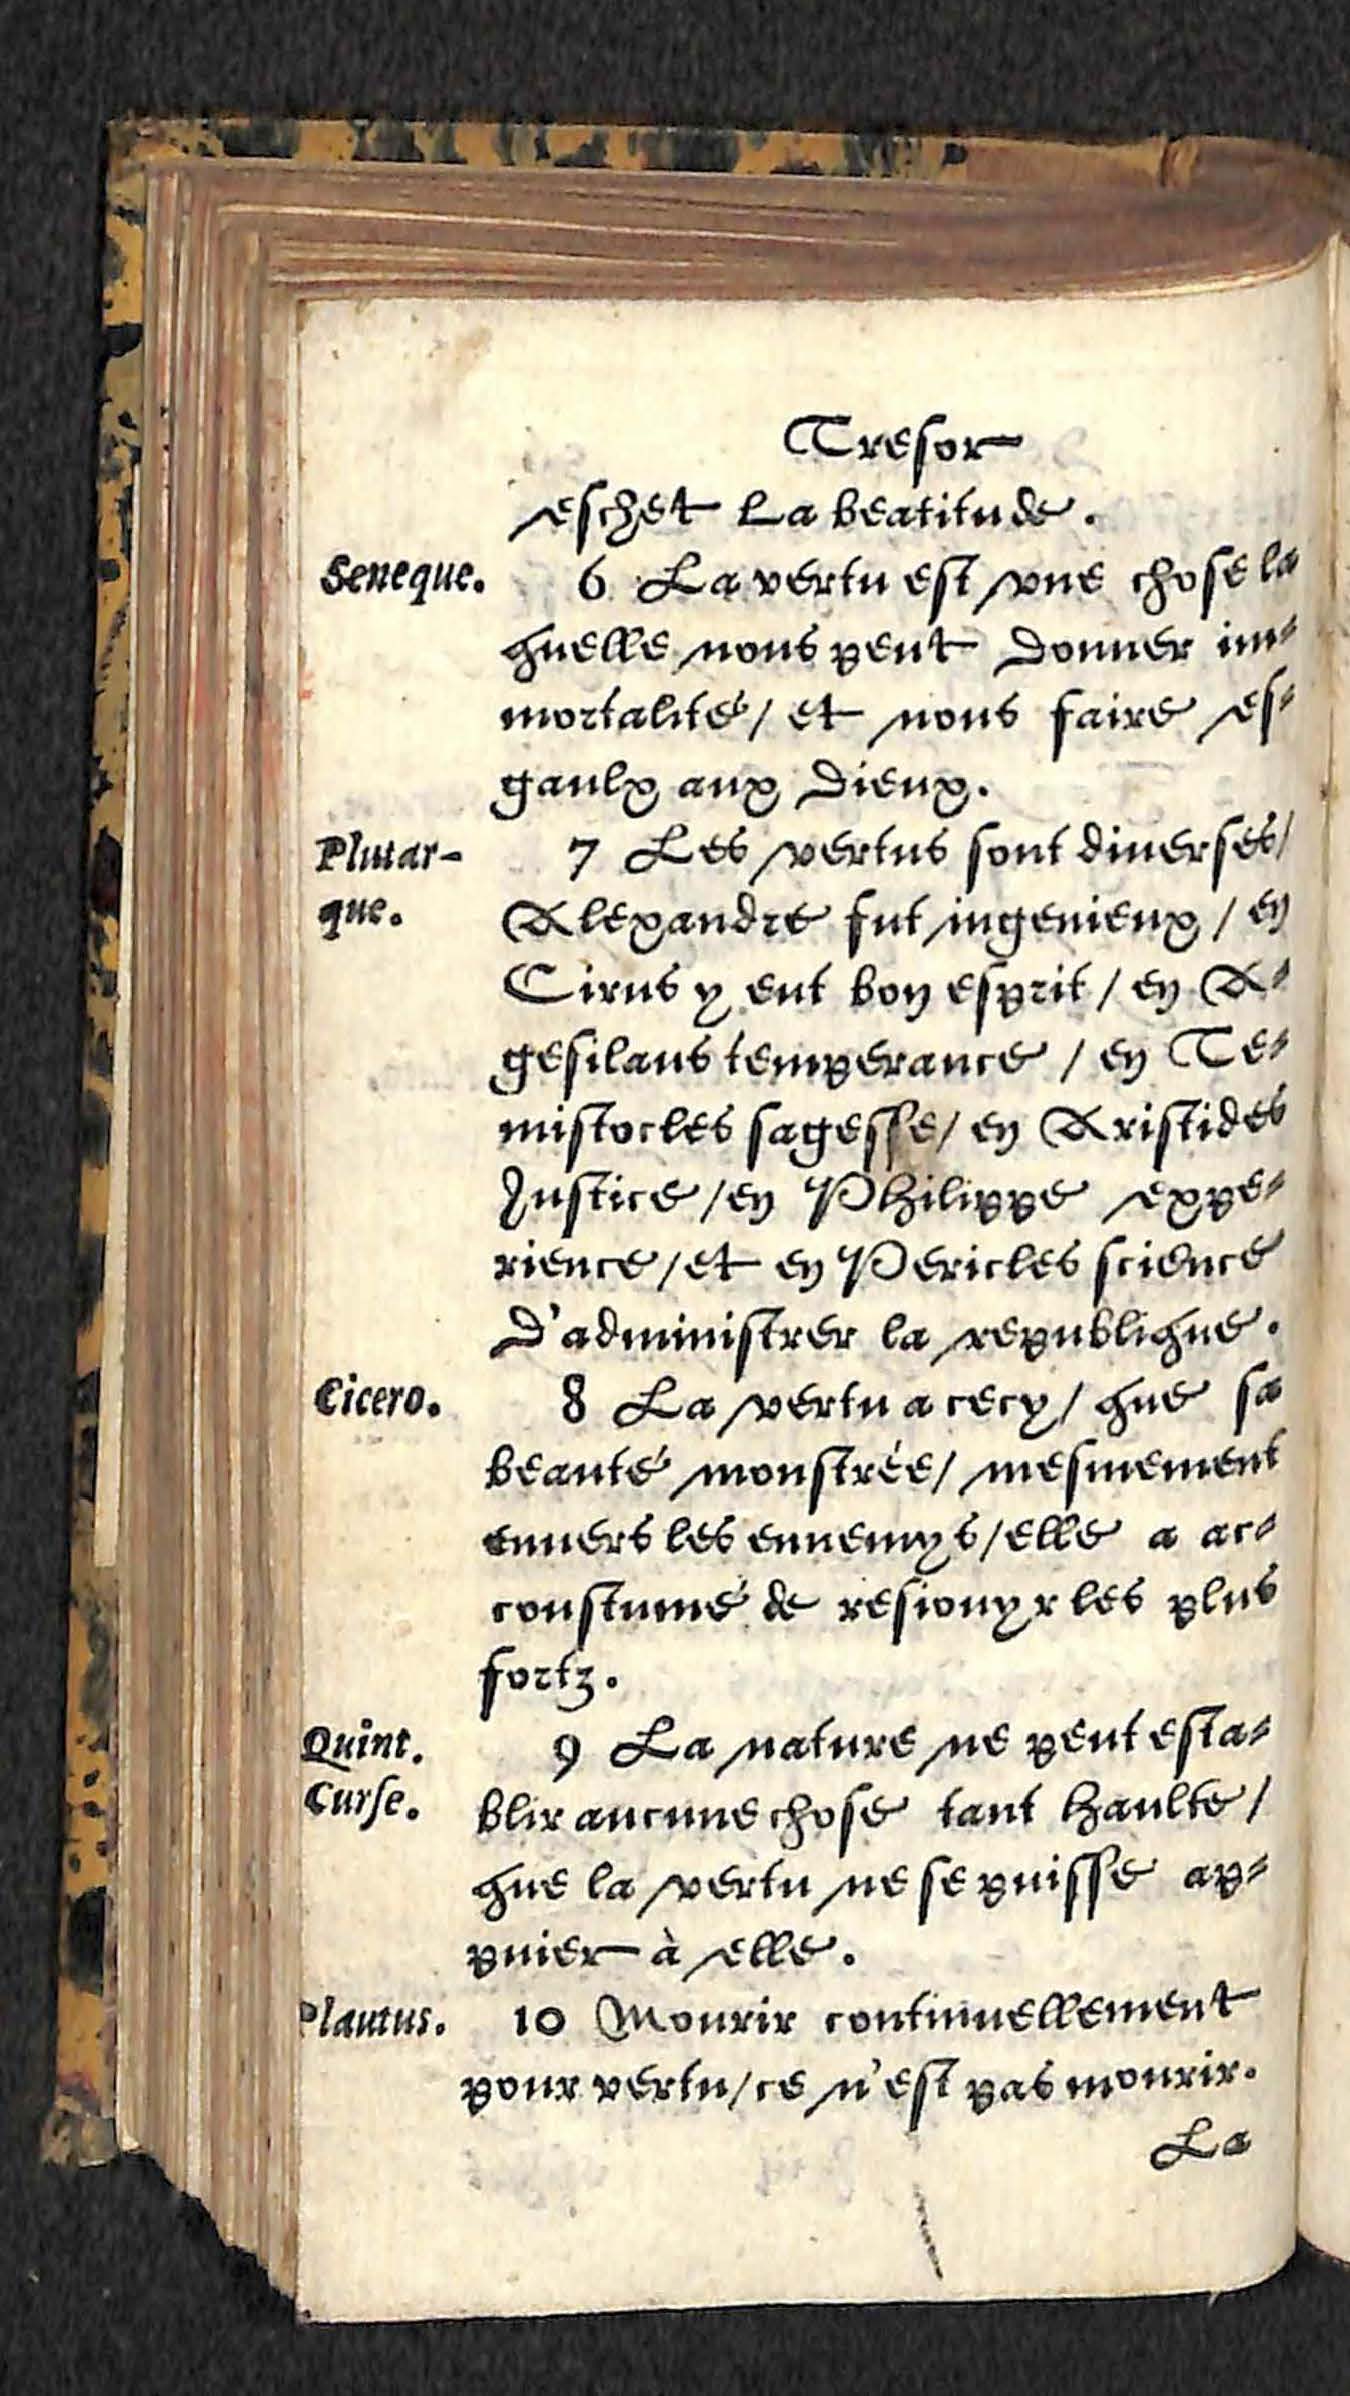 Tresor
eschet la beatitude.
Seneque. 6 La vertu est vne chose la
quelle nous peut donner im-
mortalité/ et nous faire es-
gaulx aux Dieux.
Plutar- 7 Les vertus sont diuerses/
que. Alexandre fut ingenieux / en
Cirus y eut bon esprit / en A-
gesilaus temperance / en Te-
mistocles sagesse/ en Aristides
Justice /en Philippe expe-
rience /et en Pericles science
D'administrer la republique.
Cicero. 8 La vertu a cecy/ que sa
beauté monstrée/ mesmement
enuers les ennemys/elle a ac-
coustumé de resiouyr les plus
fortz.
Quint. 9 La nature ne peut esta-
Curse. blir aucune chose tant haulte /
que la vertu ne se puisse ap-
puier à elle.
Plautus. 10 Mourir continuellement
pour vertu/ce n'est pas mourir.
La